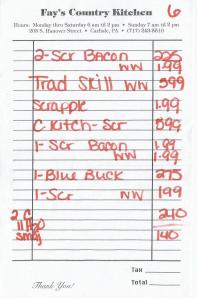 6
Fay's Country Kitchen
Hours: Monday thru Saturday 6 am til 2 pm • Sunday 7 am til 2 pm
203 S. Hanover Street • Carlisle, PA • (717) 243-5510
2-Scr Bacon 225
WW 1.99
Trad Skill WW 599
Scrapple 1.99
C Kitch-Scr 599
1-Scr Bacon 1.99
WW 1.99
1-Blue Buck 275
1-Scr WW 199
2 C 240
1 H2O
smoj 140
Tax
Thank You! Total